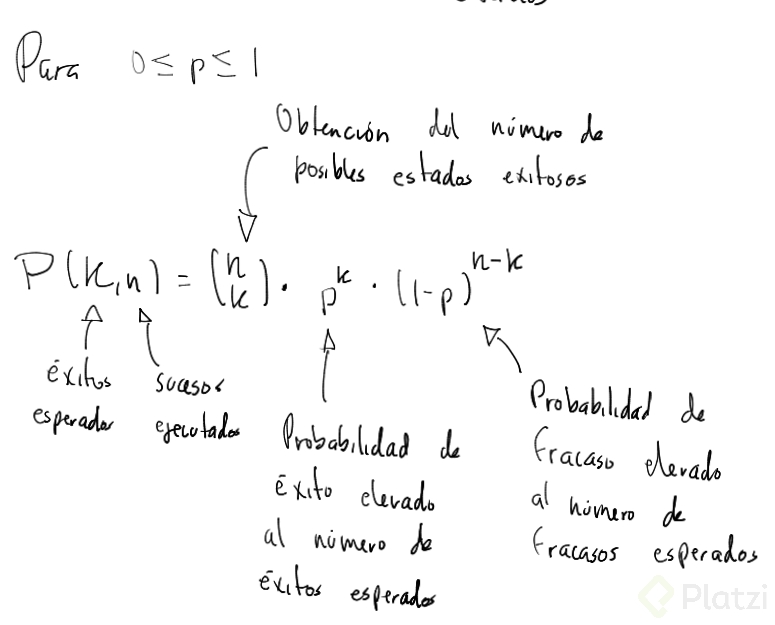 Para 0 ≤ p ≤ 1
Obtención del número de
posibles estados exitosos
P(k,n) = (n k) · p^k · (1-p)^{n-k}
éxitos
esperados
sucesos
ejecutados
Probabilidad de
éxito elevado
al número de
éxitos esperados
Probabilidad de
fracaso elevado
al número de
fracasos esperados
Platzi